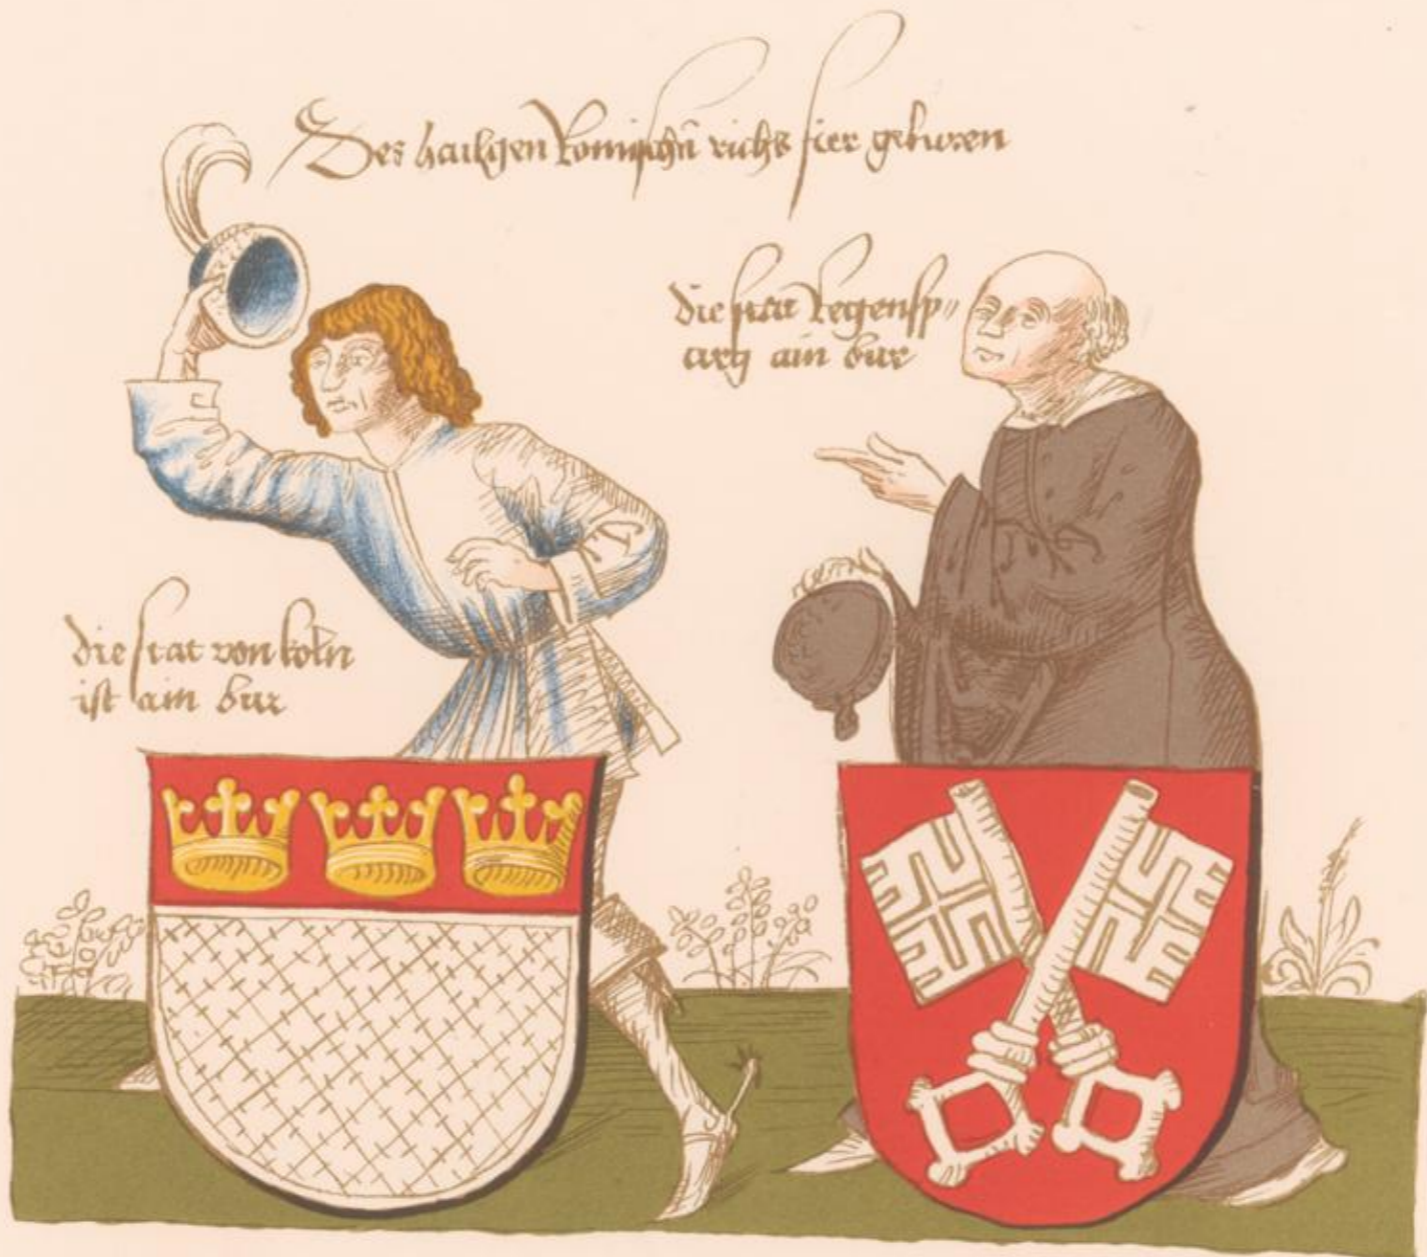 Des hailgen Romischen richs fier geburen
die stat Regensp〃
urg ain bur
die stat von köln
ist ain bur